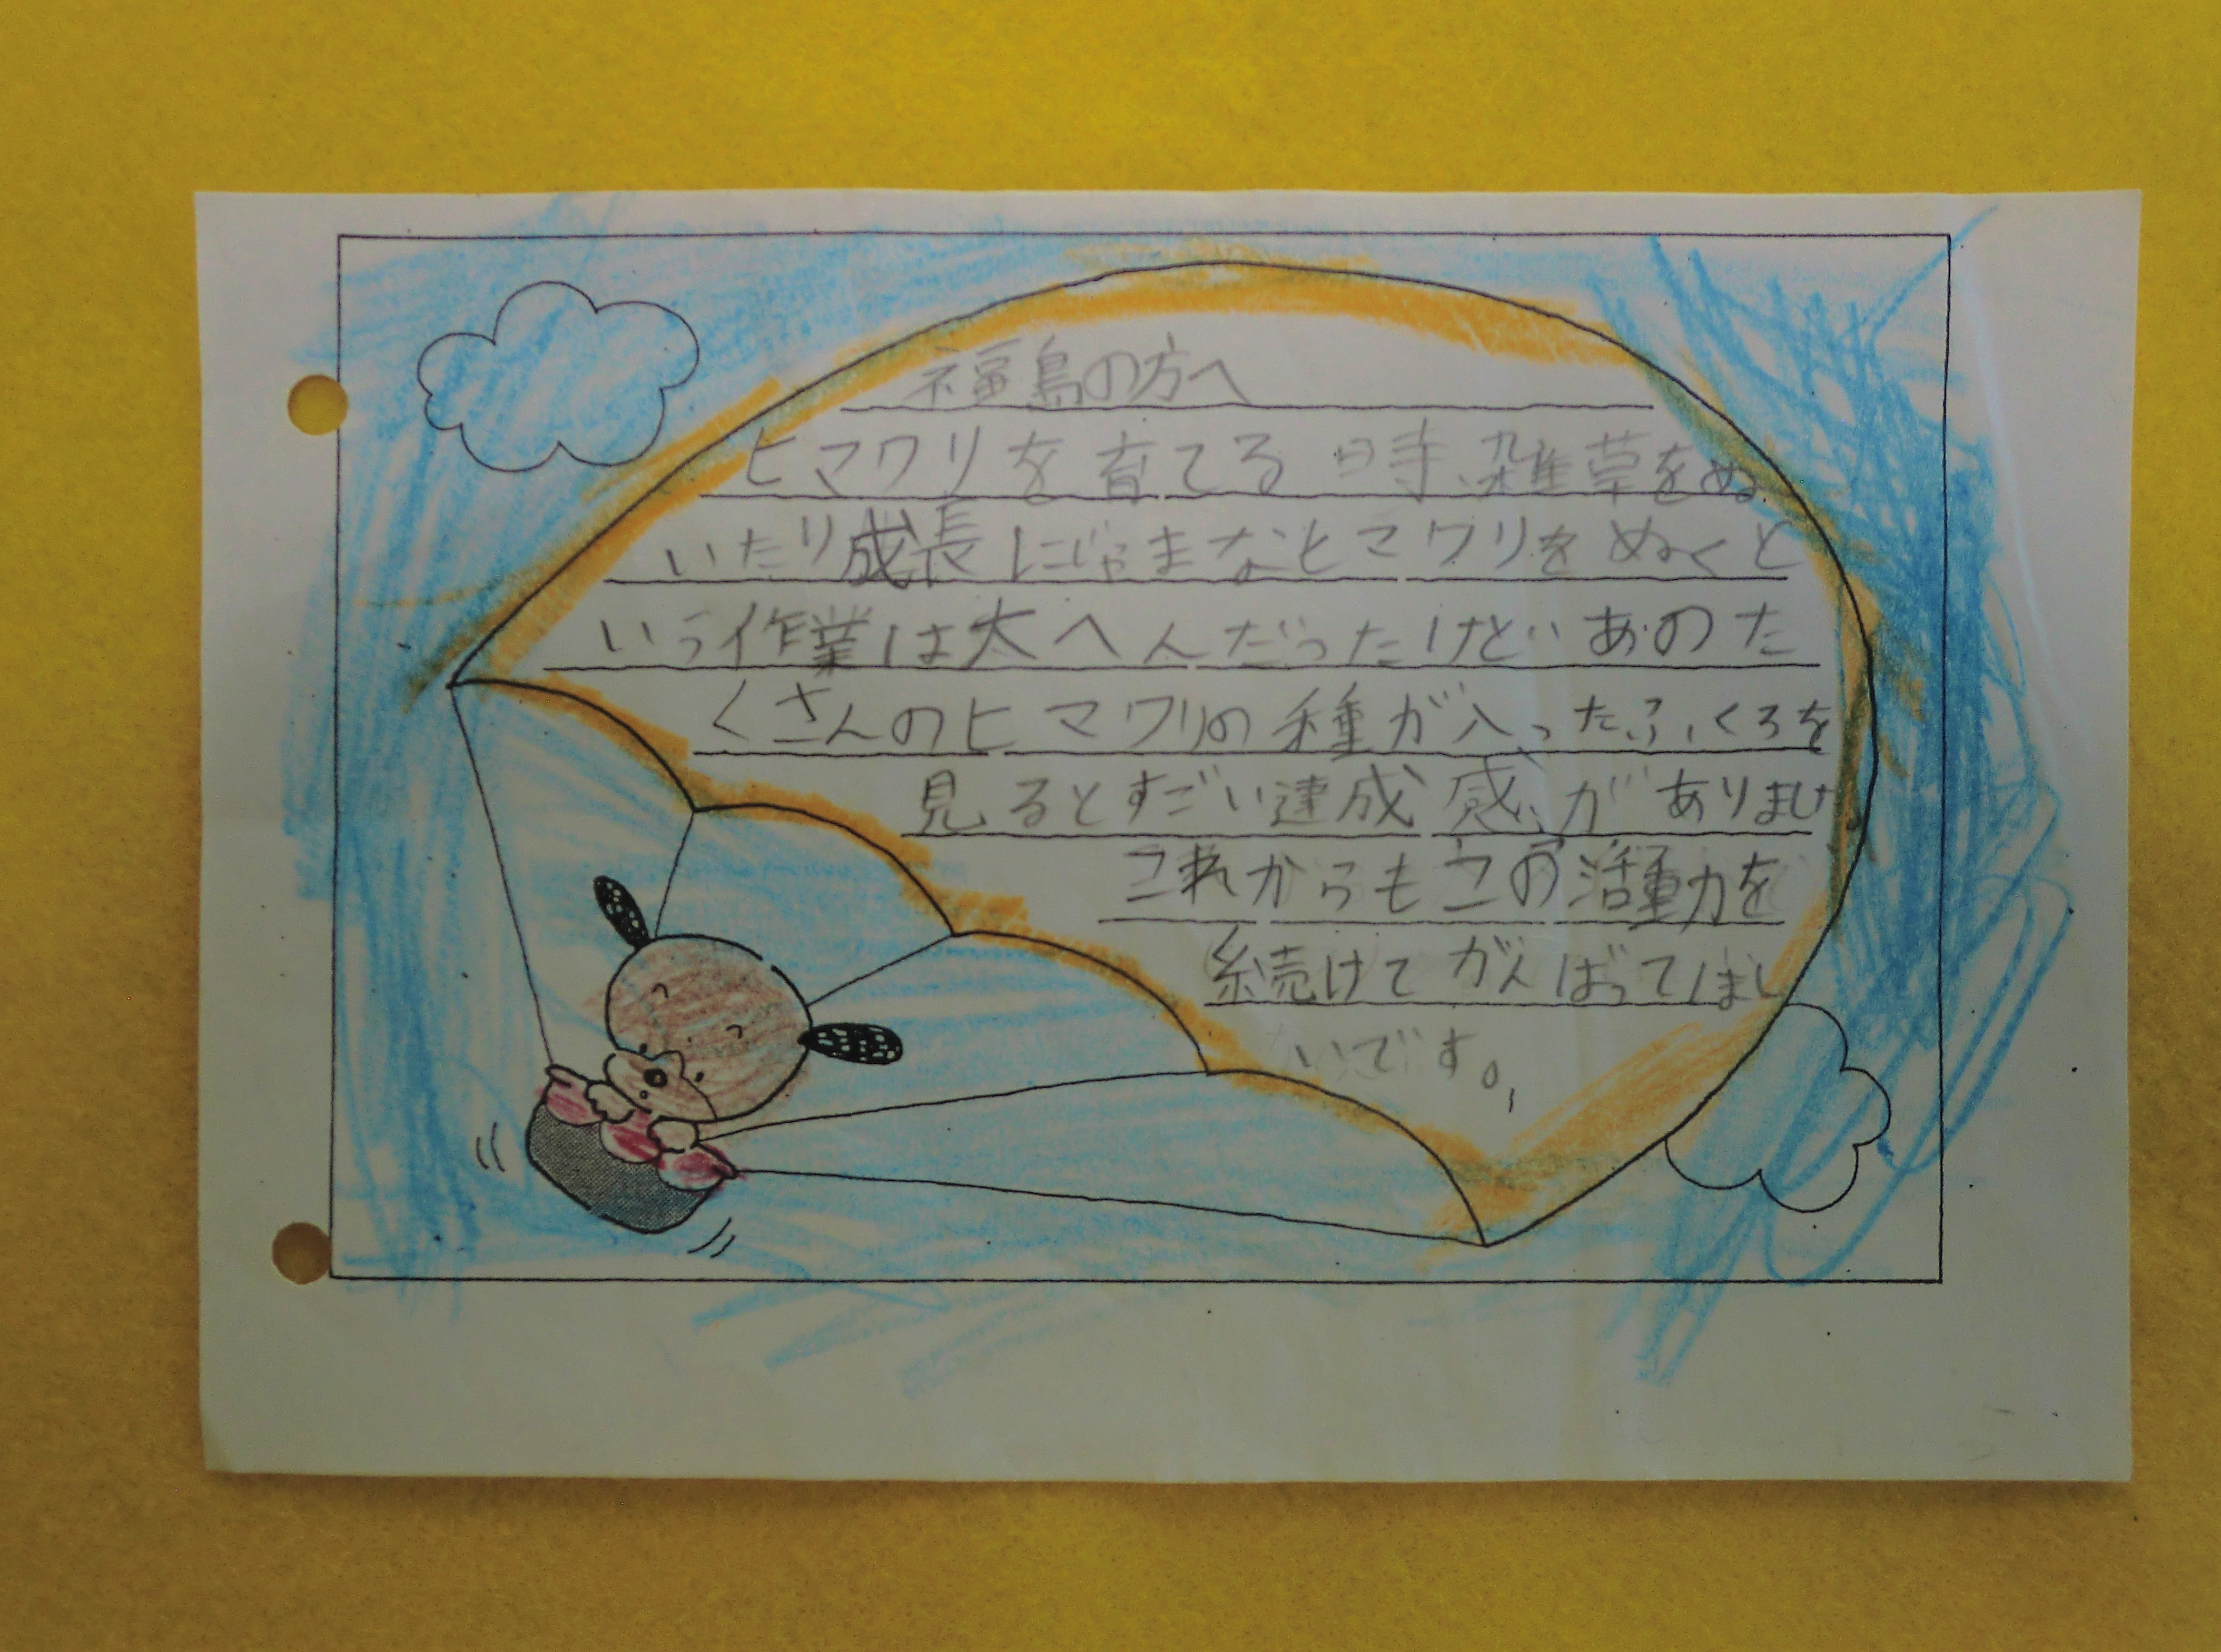 福島の方へ
ヒマワリを育てる時、雑草をぬ
いたり成長にじゃまなヒマワリをぬくと
いう作業は大へんだったけど、あのた
くさんのヒマワリの種が入ったふくろを
見るとすごい達成感がありまし
これからもこの活動を
続けてがんばってほし
いです。